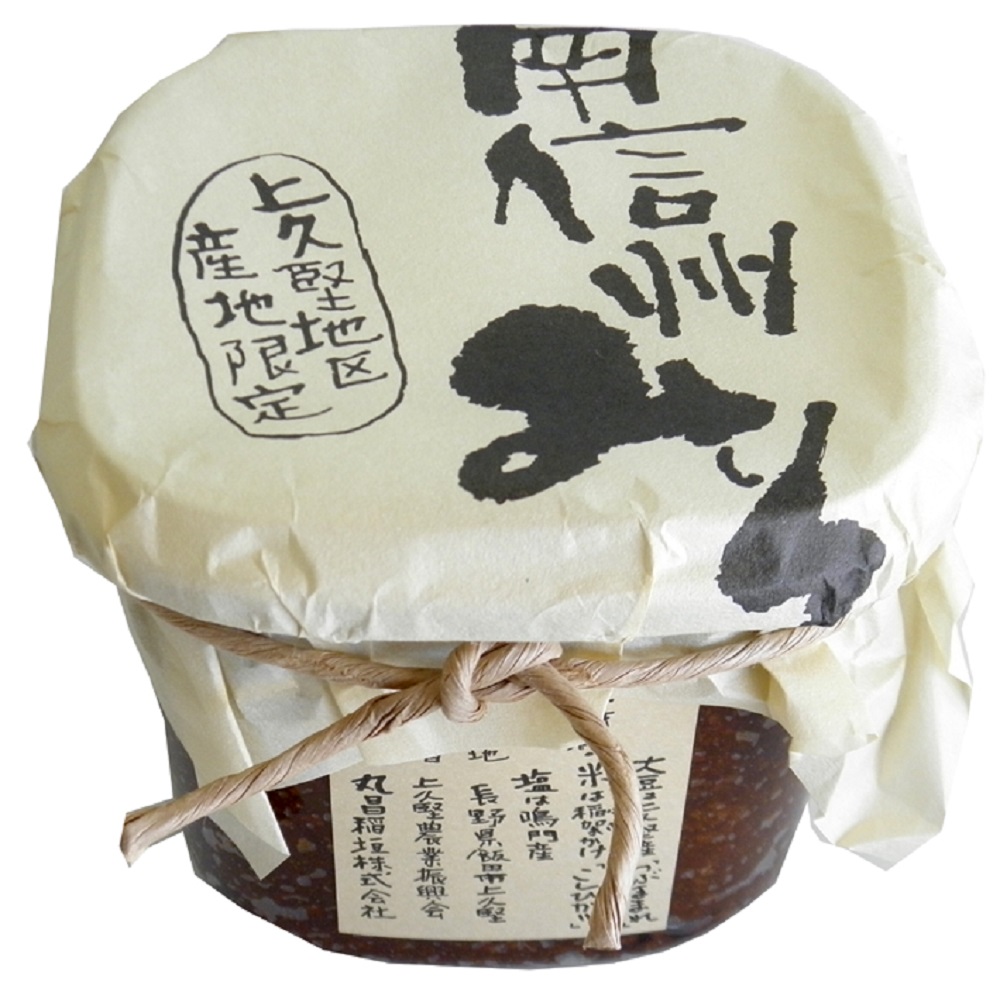 南信州みそ
上久堅地区
産地限定
大豆は
米は稲架かけ「こしひかり」
塩は鳴門産
地
長野県飯田市上久堅
上久堅農業振興会
丸昌稲垣株式会社